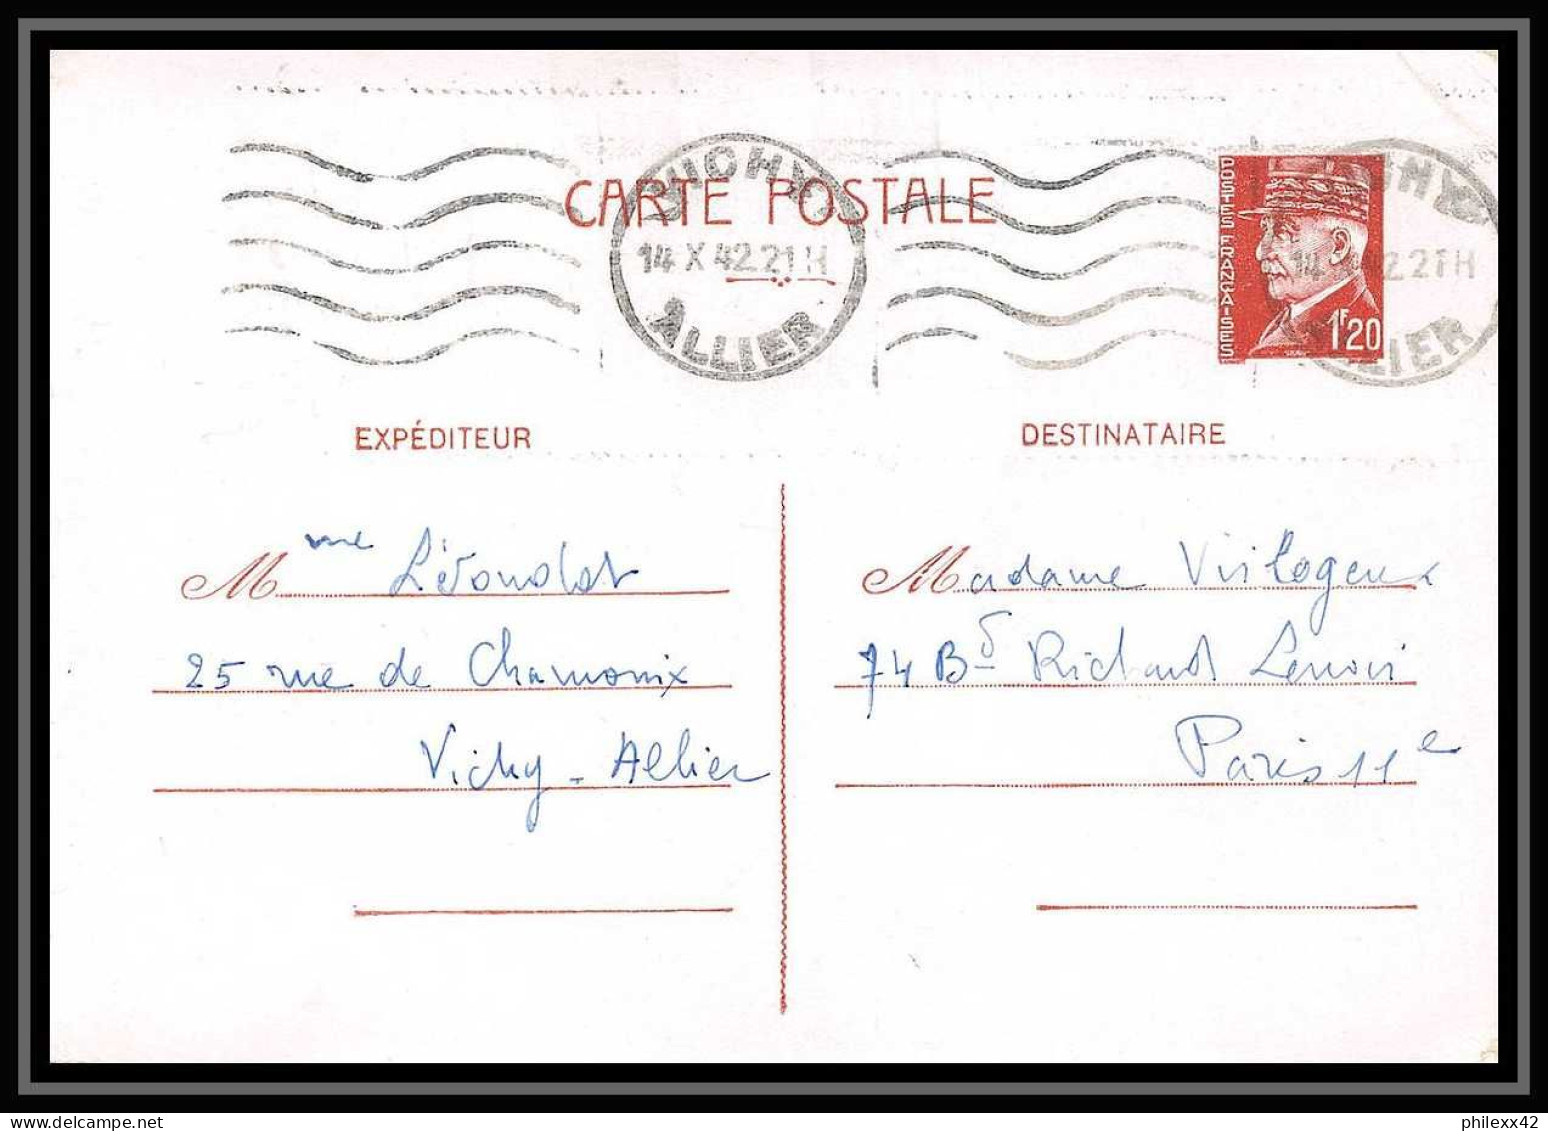 VICHY
14 X 42 21 H
ALLIER
CARTE POSTALE
POSTES FRANÇAISES
1F20
14 42 21 H
EXPÉDITEUR
DESTINATAIRE
Mme
25 rue de Chamonix
Vichy - Allier
Madame
74 Bd Richard Lenoir
Paris 11e
philexx42